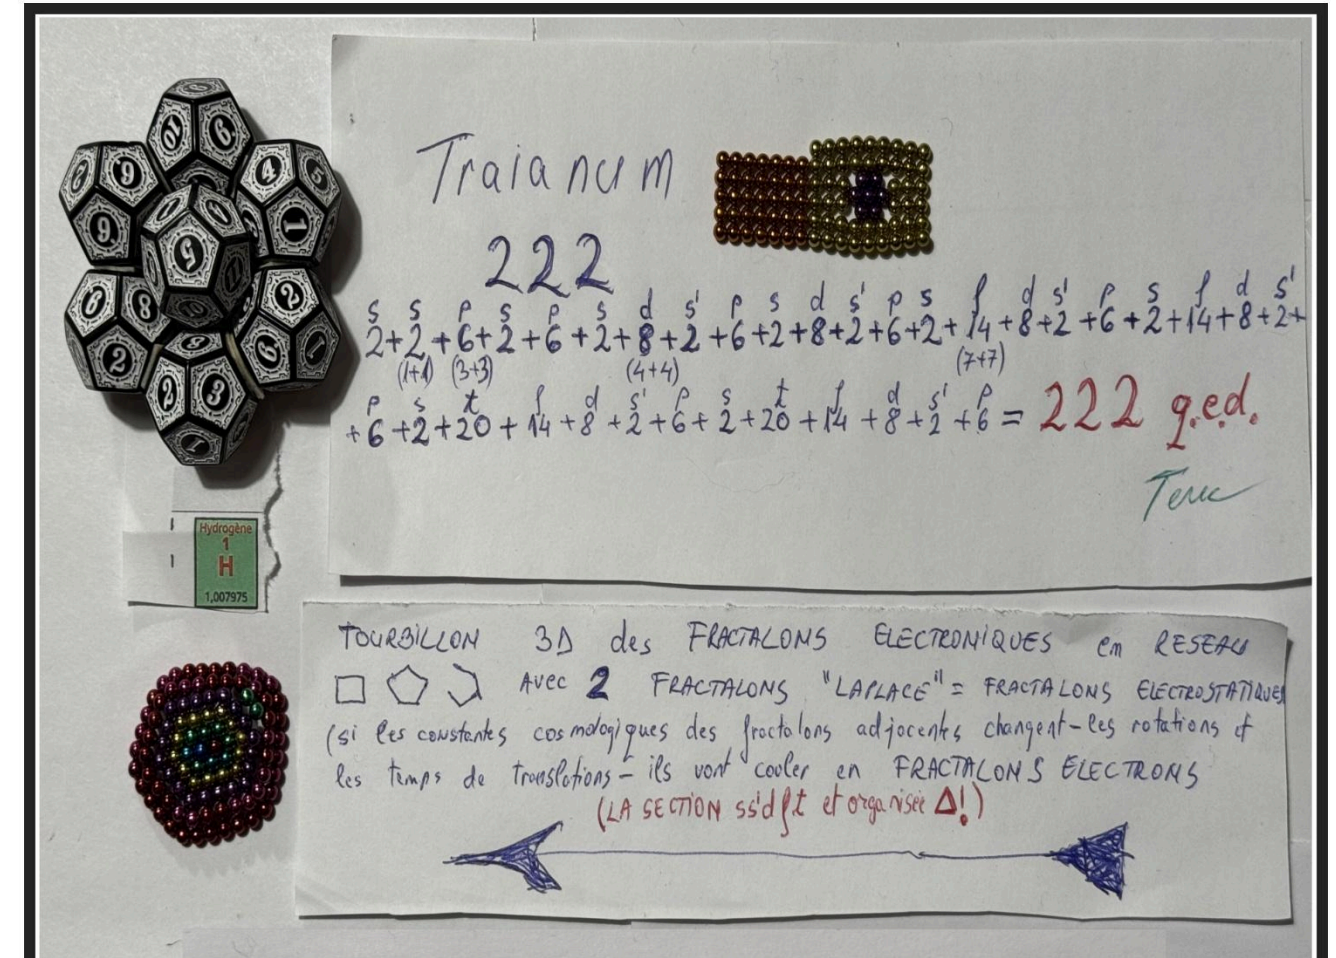 Traianum
222
s s p s p s d s' p s d s' p s f d s' p s f d s'
2+2+6+2+6+2+8+2+6+2+8+2+6+2+14+8+2+6+2+14+8+2+
(1+1) (3+3) (4+4) (7+7)
p s t f d s' p s t f d s' p
+6+2+20+14+8+2+6+2+20+14+8+2+6 = 222 q.e.d.
Hydrogène
1
H
1,007975
TOURBILLON 3D des FRACTALONS ELECTRONIQUES em RESEAU
AVEC 2 FRACTALONS "LAPLACE" = FRACTALONS ELECTROSTATIQUES
(si les constantes cosmologiques des fractalons adjacentes changent-les rotations et
les temps de translations - ils vont couler en FRACTALONS ELECTRONS
(LA SECTION ss'dft et organisée Δ!)